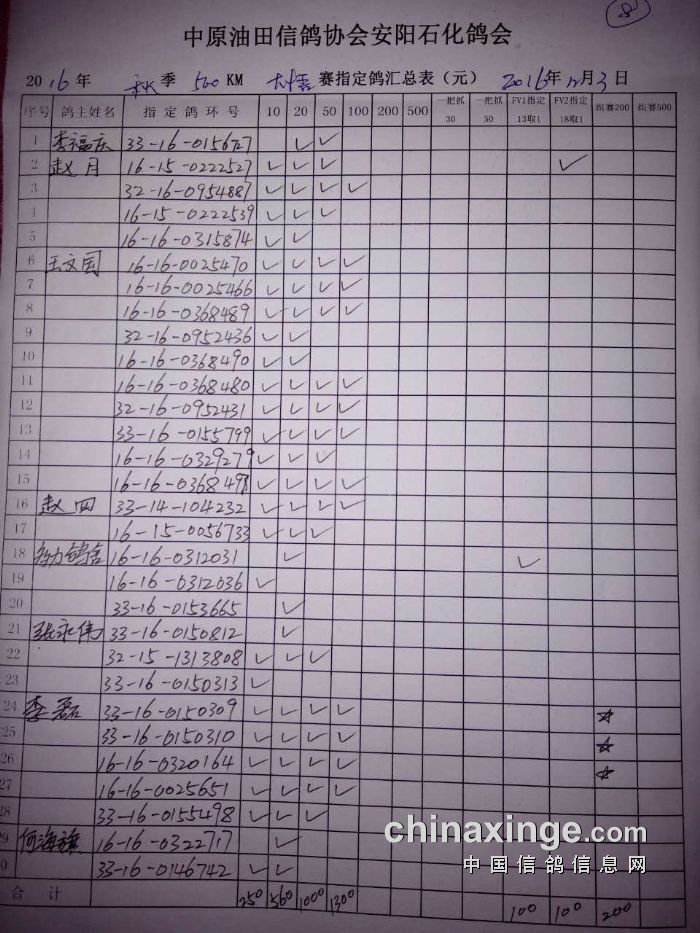 8
中原油田信鸽协会安阳石化鸽会
2016年 秋季 560KM 赛指定鸽汇总表（元） 2016年12月3日
序号 鸽主姓名 指定鸽环号 10 20 50 100 200 500 一把抓30 一把抓50 FV1指定13取1 FV2指定18取1 组赛200 组赛500
1 李福庆 33-16-0156747 ✓ ✓
2 赵月 16-15-0222527 ✓ ✓ ✓ ✓
3 32-16-0954887 ✓ ✓ ✓ ✓
4 16-15-0222539 ✓ ✓ ✓
5 16-16-0315874 ✓ ✓
6 王文国 16-16-0025470 ✓ ✓ ✓ ✓
7 16-16-0025466 ✓ ✓ ✓ ✓
8 16-16-0368489 ✓ ✓ ✓ ✓
9 32-16-0952436 ✓ ✓
10 16-16-0368490 ✓ ✓
11 16-16-0368480 ✓ ✓ ✓ ✓
12 32-16-0952431 ✓ ✓ ✓ ✓
13 33-16-0155799 ✓ ✓ ✓ ✓
14 16-16-0329279 ✓ ✓ ✓
15 16-16-0368498 ✓ ✓ ✓ ✓
16 赵四 33-14-104232 ✓ ✓ ✓ ✓
17 16-15-0056733 ✓ ✓ ✓
18 鸽舍 16-16-0312031 ✓ ✓
19 16-16-0312036 ✓
20 33-16-0153665 ✓
21 张永伟 33-16-0150812 ✓
22 32-15-1313808 ✓ ✓ ✓
23 33-16-0150313 ✓
24 李磊 33-16-0150309 ✓ ✓ ✓ ✓ ☆
25 33-16-0150310 ✓ ✓ ✓ ✓ ☆
26 16-16-0320164 ✓ ✓ ✓ ✓ ☆
27 16-16-0025651 ✓ ✓ ✓ ✓
28 33-16-0155498 ✓ ✓ ✓
29 何海旗 16-16-0322717 ✓
0 33-16-0146742 ✓ ✓
合计 250 560 1000 1300 100 100 200
chinaxinge.com
中国信鸽信息网